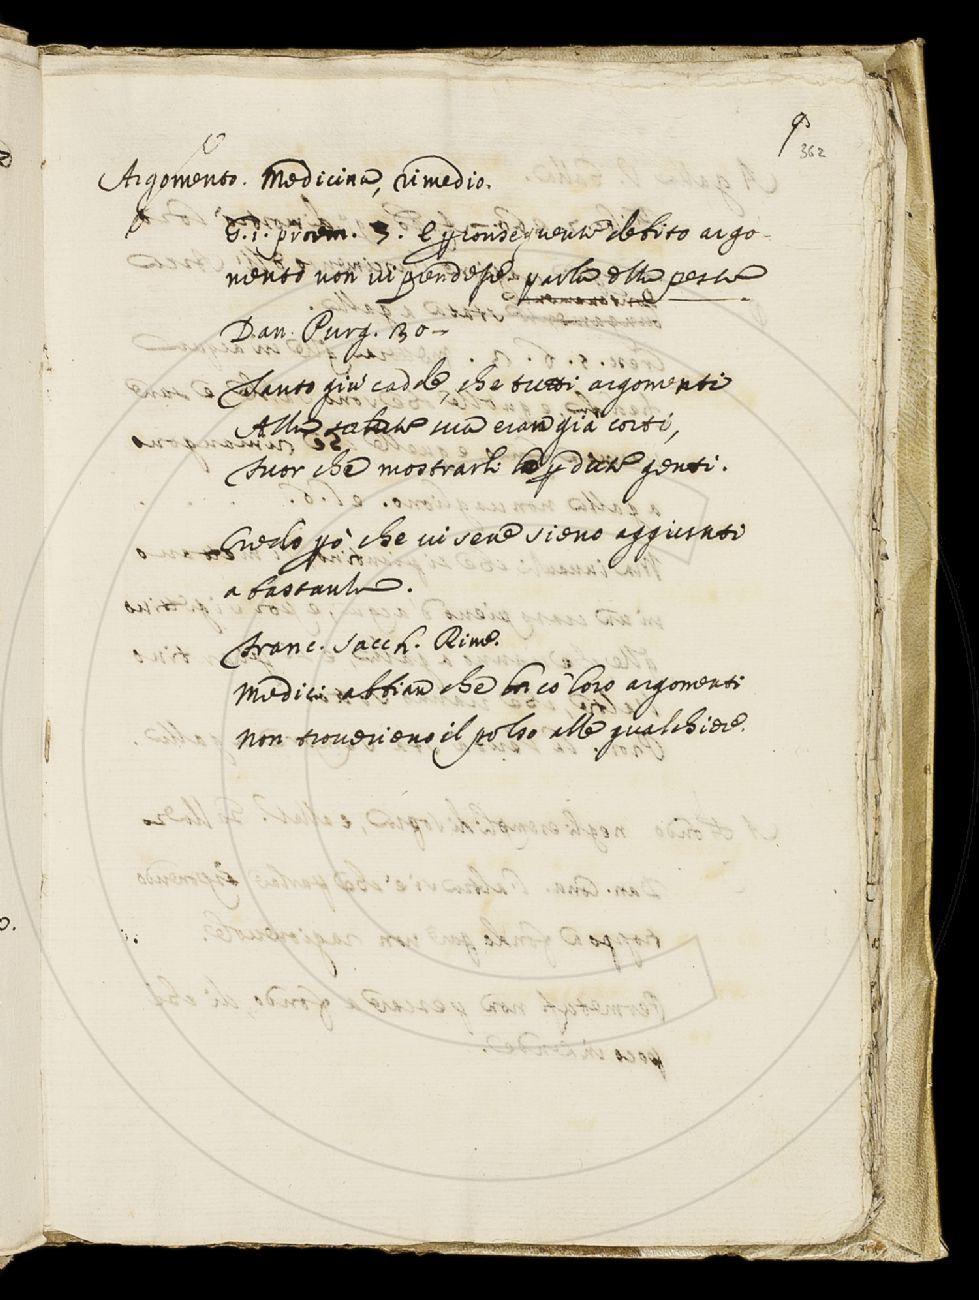 362
Argomento. Medicina, rimedio.
G. 1. proem. 3. E p conseguente debito argo-
mento non vi prendesse. parla della peste
Dan. Purg. 30
Tanto giù cadde, che tutti argomenti
Alla salute sua eran già corti,
Fuor che mostrarli le p dute genti.
Credo pò che vi sene sieno aggiunti
a bastanza.
Franc. Sacch. Rime.
Medici abbian che co loro argomenti
Non troverieno il polso alle gualchiere.